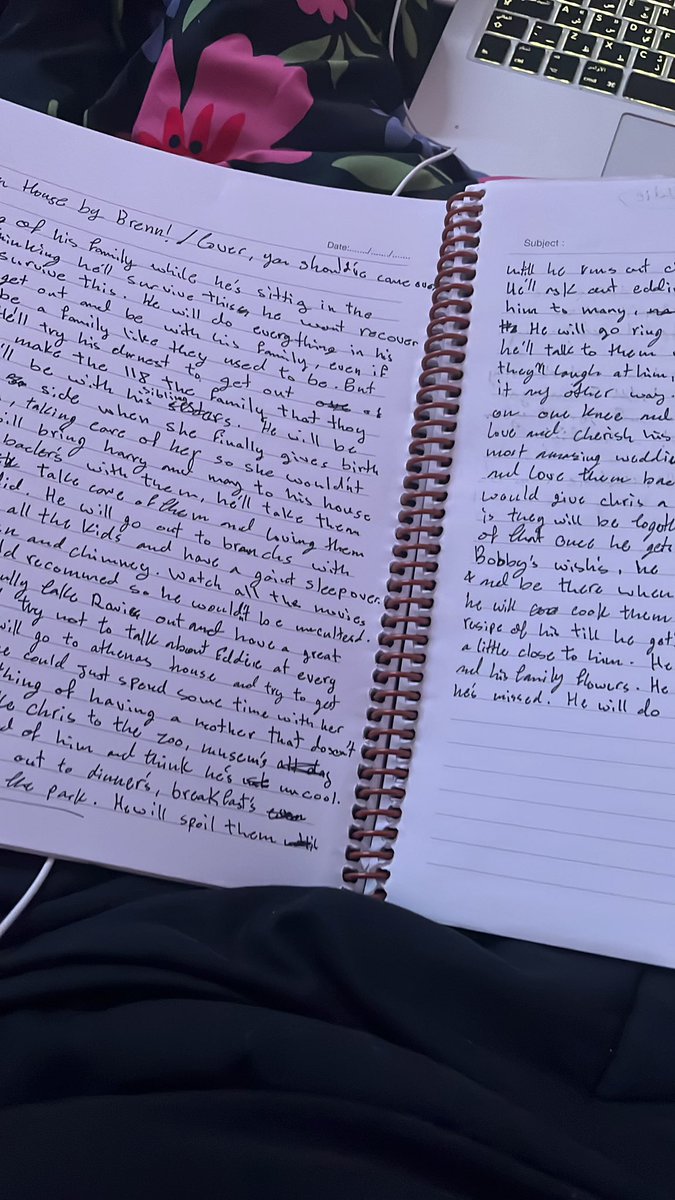 House by Brenn! / Lover, you should've came over
Date:
of his family while he's sittig in the
thinking he'll survive this, he wont recover
survive this. He will do everything in his
get out and be with his family, even if
be a family like they used to be. But
He'll try his darnest to get out
make the 118 the family that they
be with his siblings. He will be
side when she finally gives birth
, taking care of her so she wouldn't
will bring harry and may to his house
with them, he'll take them
take care of them and loving them
did. He will go out to branchs with
all the kids and have a giant sleepover
and chimney. Watch all the movies
recomned so he wouldn't be uncultead.
take Ravi out and have a great
try not to talk about Eddie at every
will go to athenas house and try to get
could just spend some time with her
thing of having a mother that doesn't
chris to the zoo, musem's
of him and think he's uncool.
out to dinner's, breakfast's
the park. He will spoil them
Subject :
until he runs out
He'll ask out eddie
him to many,
He will go ring
he'll talk to them
they'll laugh at him,
it my other way.
on one knee and
love and cherish his
most amazing weddi
and love them bac
would give chris a
is they will be togeth
of that once he gets
Bobby's wish's, he
& and be there when
he will cook them
resipe of his till he got
a little close to him. He
and his family flowers. He
he's missed. He will do
A
S
D
F
Z
X
C
R
E